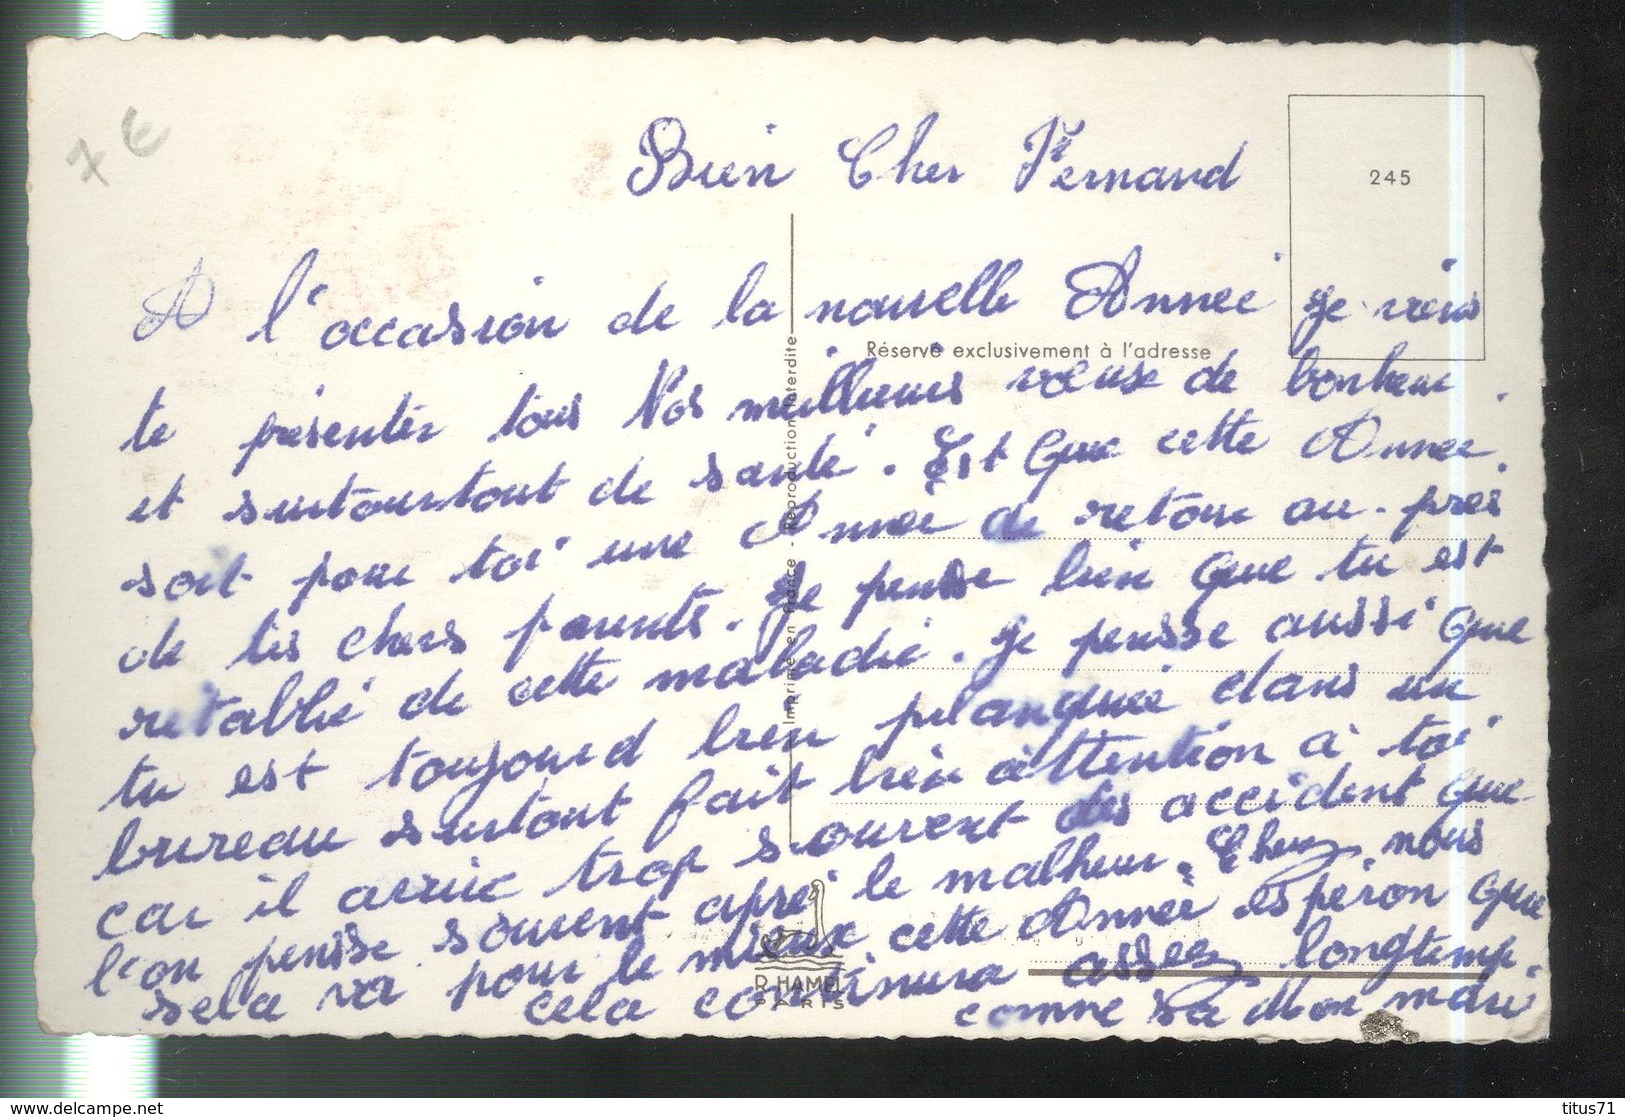 7 €
Bien Cher Fernand
245
A l'occasion de la nouvelle Année je viens
Réservé exclusivement à l'adresse
te présenter tous Nos meilleurs vœuse de bonheur.
et surtourtout de santé. Est que cette Année
soit pour toi une Année de retour au-près
de tes chers parents. Je pensse bien que tu est
retablie de cette maladie. Je pensse aussi que
tu est toujourd bien planquée dans un
bureau surtout fait bien attention à toi
car il arrive trop souvent des accident que
l'on pensse souvent après le malheur. Chez nous
sela va pour le mieux cette Année espéron que
cela continura assez longtemp.
comme sa Mon mari
Imprimé en France - Reproduction interdite
R. HAMEL
PARIS
delcampe.net
titus71